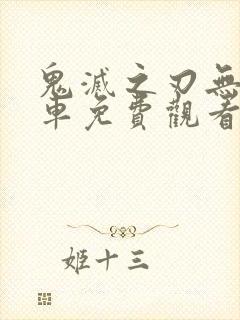 鬼滅之刃無
車免費觀看
姬十三